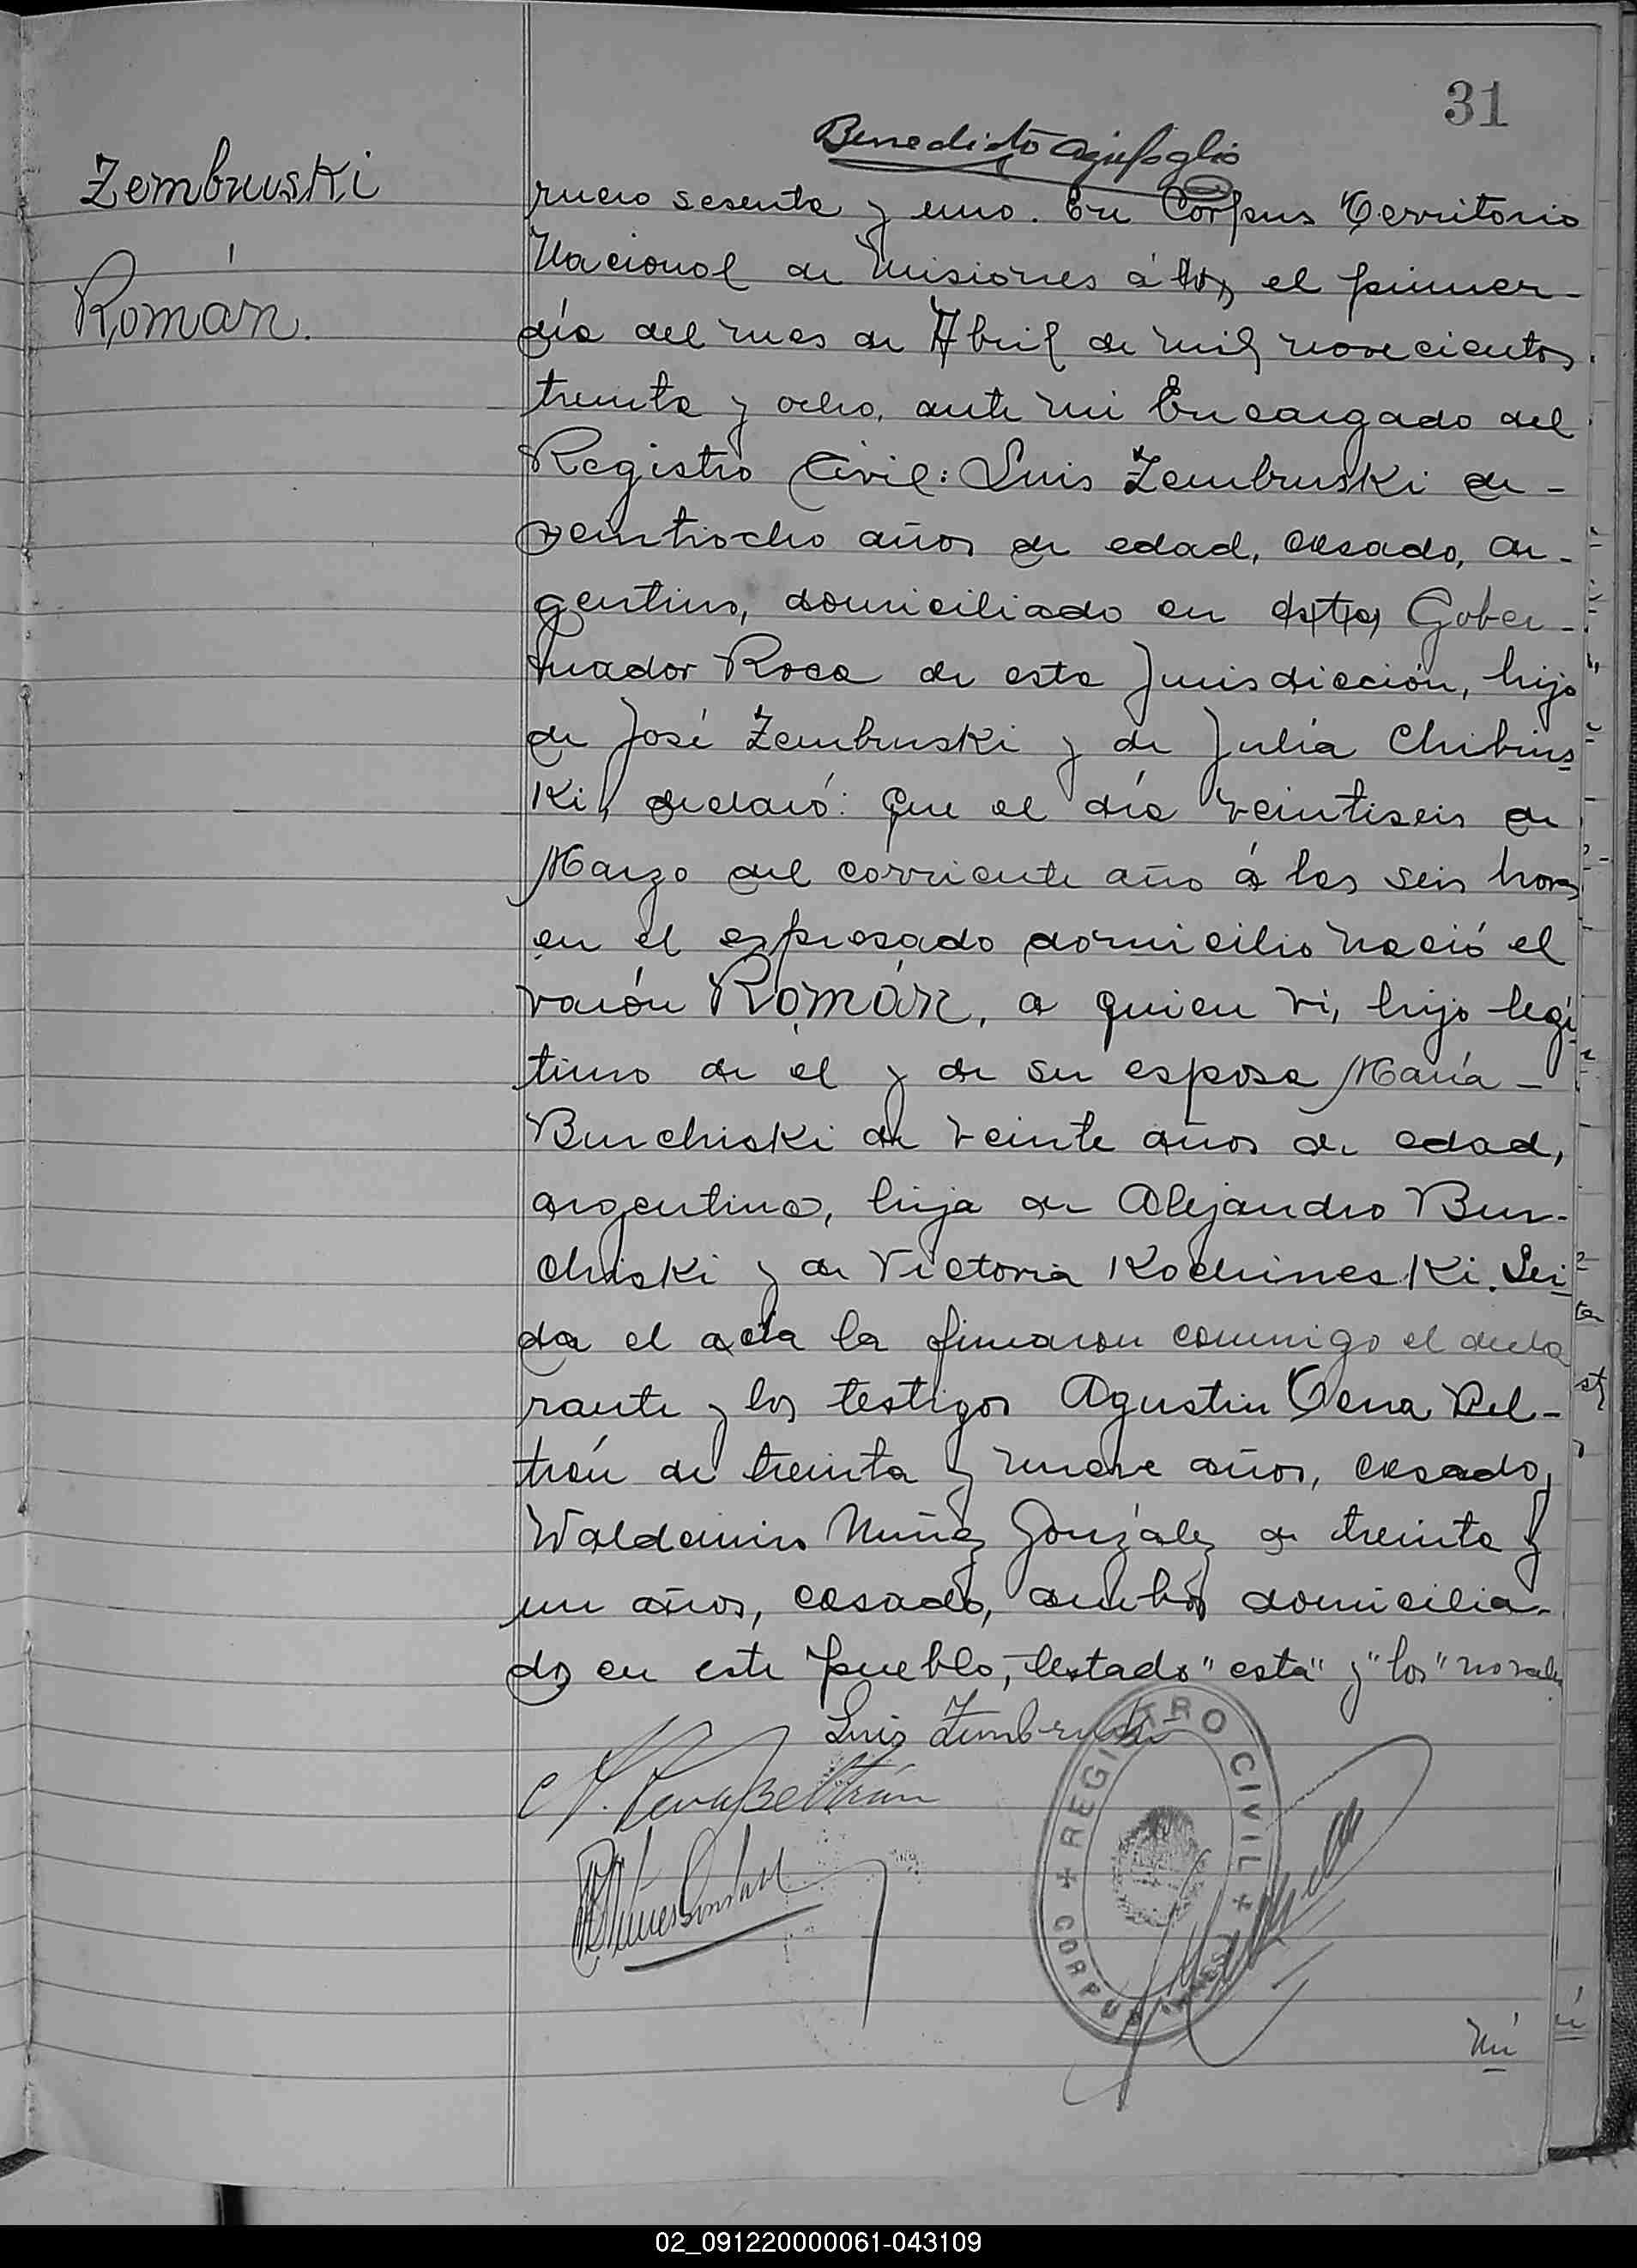 31
Benedicto Agrifoglio
Zembruski
Román.
mero sesenta y uno. En Corpus Territorio
Nacional de Misiones á los el primer-
día del mes de Abril de mil novecientos
treinta y ocho, ante mi Encargado del
Registro Civil: Luis Zembruski de-
veintiocho años de edad, casado, ar-
gentino, domiciliado en esta Gober-
nador Roca de esta Jurisdicción, hijo
de José Zembruski y de Julia Chibins
ki, declaró: Que el día veintiseis de
Marzo del corriente año á las seis horas
en el espresado domicilio nació el
varón Román, a quien vi, hijo legí
timo de el y de su esposa María-
Burchiski de veinte años de edad,
argentina, hija de Alejandro Bur-
chiski y de Victoria Kochineski. Leí
da el acta la firmaron conmigo el decla
rante y los testigos Agustin Vera Bel-
trán de treinta y nueve años, casado,
Waldemiro Nuñez González de treinta y
un años, casado, ambos domicilia-
dos en este pueblo,-testado "esta" y "los" no vale
Luis Zembruski
A. Vera Beltrán
REGISTRO CIVIL
CORPUS
Nú
02_091220000061-043109